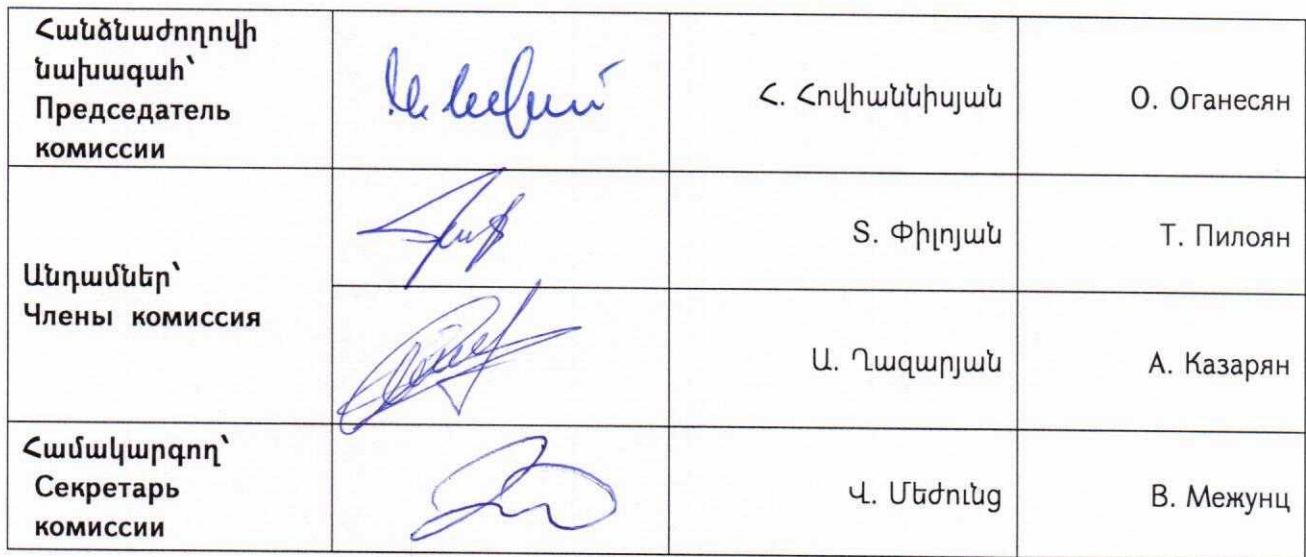 Հանձնաժողովի
նախագահ՝
Председатель
комиссии
Հ. Հովհաննիսյան
О. Оганесян
Անդամներ՝
Члены комиссия
Տ. Փիլոյան
Т. Пилоян
Ա. Ղազարյան
А. Казарян
Համակարգող՝
Секретарь
комиссии
Վ. Մեժունց
В. Межунц